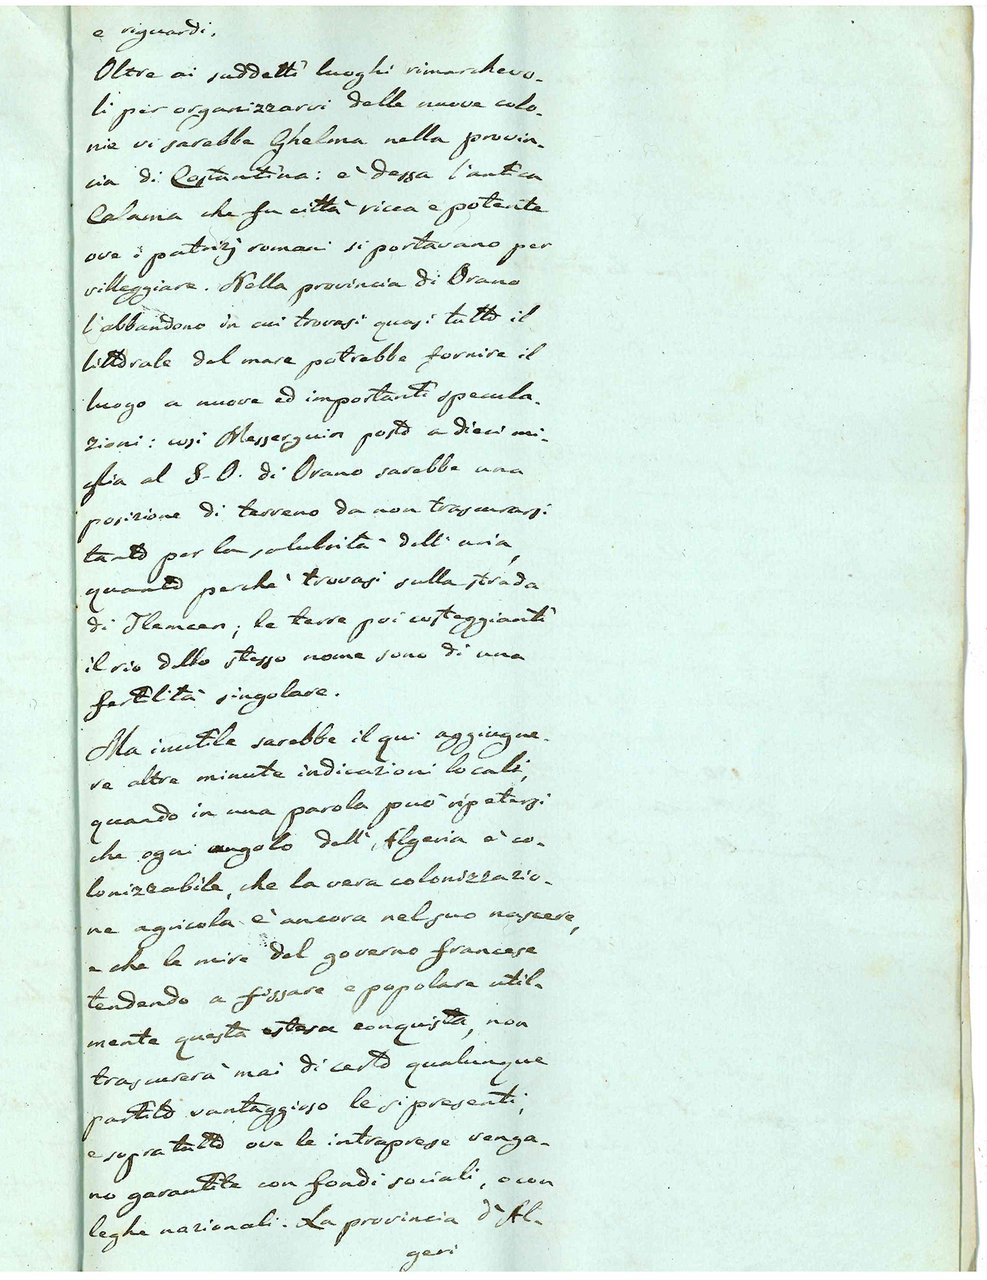 e riguardi.
Oltre ai suddetti luoghi rimarchevo-
li per organizzarvi delle nuove colo-
nie vi sarebbe Ghelma nella provin-
cia di Costantina: e' dessa l'antica
Calama che fu città ricca e potente
ove i patrizj romani si portavano per
villeggiare. Nella provincia di Orano
l'abbandono in cui trovasi quasi tutto il
littorale del mare potrebbe fornire il
luogo a nuove ed importanti specula-
zioni: cosi Messerguin posto a dieci mi-
glia al S-O. di Orano sarebbe una
posizione di terreno da non trascurarsi
tanto per la salubrità dell'aria,
quanto perchè trovasi sulla strada
di Tlemcen; le terre poi costeggianti
il rio dello stesso nome sono di una
fertilità singolare.
Ma inutile sarebbe il qui aggiugne-
re altre minute indicazioni locali,
quando in una parola può ripetersi
che ogni angolo dell'Algeria è co-
lonizzabile, che la vera colonizzazio-
ne agricola è ancora nel suo nascere,
e che le mire del governo francese
tendendo a fissare e popolare util-
mente questa estesa conquista, non
trascurerà mai di certo qualunque
partito vantaggioso le si presenti,
e sopratutto ove le intraprese venga-
no garantite con fondi sociali, o con
leghe nazionali. La provincia d'Al-
geri